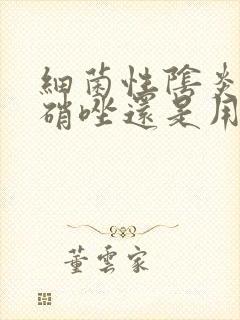 細菌性陰炎
硝唑還是用
董雲家